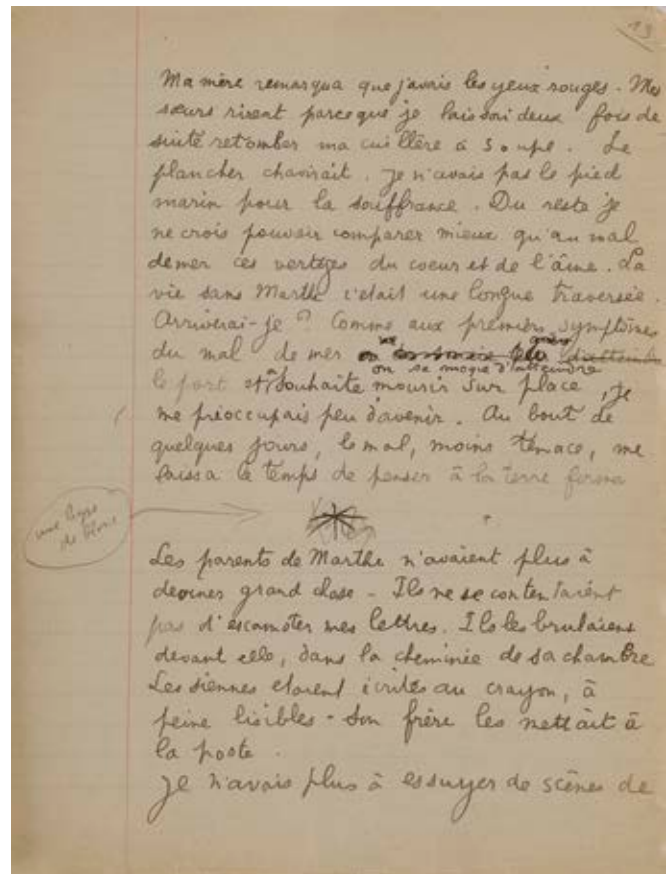 13
Ma mère remarqua que j'avais les yeux rouges. Mes
sœurs rirent parceque je laissai deux fois de
suite retomber ma cuillère à soupe. Le
plancher chavirait. Je n'avais pas le pied
marin pour la souffrance. Du reste je
ne crois pouvoir comparer mieux qu'au mal
de mer ces vertiges du coeur et de l'âme. La
vie sans Marthe c'était une longue traversée.
Arriverai-je ? Comme aux premiers symptômes
du mal de mer
on se moque d'atteindre
le port et souhaite mourir sur place, je
me préoccupais peu d'avenir. Au bout de
quelques jours, le mal, moins tenace, me
laissa le temps de penser à la terre ferme
une ligne
de blanc
Les parents de Marthe n'avaient plus à
deviner grand chose - Ils ne se contentaient
pas d'escamoter mes lettres. Ils les brulaient
devant elle, dans la cheminée de sa chambre
Les siennes etaient écrites au crayon, à
peine lisibles - Son frère les mettait à
la poste.
Je n'avais plus à essuyer de scènes de